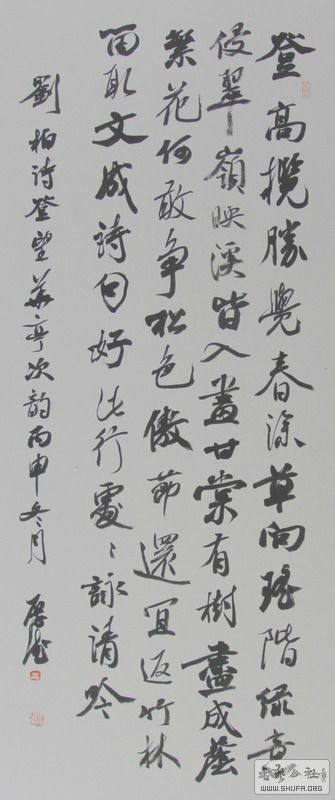 登高攬勝覺春深草向瑤階綠意
侵翠嶺映溪皆入畫甘棠有樹盡成蔭
繁花何敢争松色傲節還宜返竹林
留取文成詩句好此行處〻詠清吟
劉柏詩登望華亭次韵丙申冬月
書藝公社
WWW.SHUFA.ORG